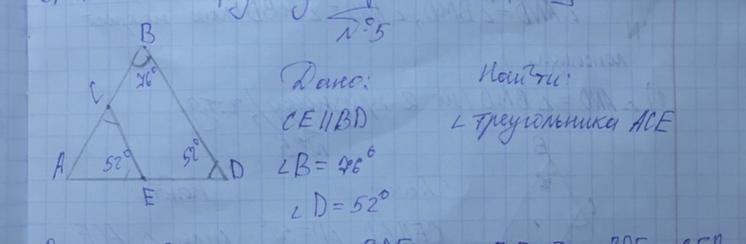 №5
B
76°
C
A
52°
52°
D
E
Дано:
CE||BD
∠B = 76°
∠D = 52°
Найти:
∠ треугольника ACE